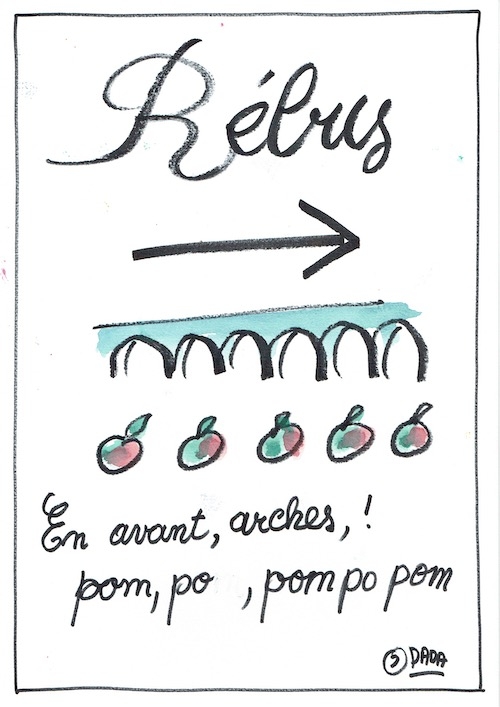 Rébus
En avant, arches, !
pom, po , pom po pom
5 DADA